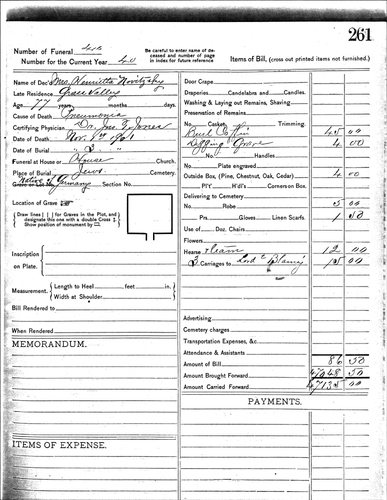 261
Number of Funeral
Number for the Current Year 40
Be carefull to enter name of deceased and number of page in index for future reference
Items of Bill, (cross out printed items not furnished.)
Name of Dec'd Mrs. Henrietta Novitzky
Late Residence Grass Valley
Age 77 years months days.
Cause of Death Pneumonia
Certifying Physician Dr. Jones
Date of Death Nov. 1901
Date of Burial " "
Funeral at House or House Church.
Place of Burial Jews. Cemetery.
Native of Germany
Grave or Lot No. Section No.
Location of Grave
Draw lines [ ] for Graves in the Plot, and designate this one with a double Cross. Show position of monument by
Inscription on Plate.
Measurement. Length to Heel feet in.
Width at Shoulder
Bill Rendered to
When Rendered
MEMORANDUM.
ITEMS OF EXPENSE.
Door Crape
Draperies Candelabra and Candles.
Washing & Laying out Remains, Shaving
Preservation of Remains
No. Casket, Trimming.
Coffin 45 00
Digging Grave 4 00
No. Handles
Plate engraved
Outside Box, (Pine, Chestnut, Oak, Cedar) 4 00
Pl'Y H'dl's Corners on Box.
Delivering to Cemetery
No. Robe 5 00
Prs. Gloves Linen Scarfs. 1
Use of Doc. Chairs
Flowers
Hearse 12 00
3 Carriages to 15 00
Advertising
Cemetery charges
Transportation Expenses, &c.
Attendance & Assistants
Amount of Bill 86 50
Amount Brought Forward 47048 50
Amount Carried Forward 47135 00
PAYMENTS.